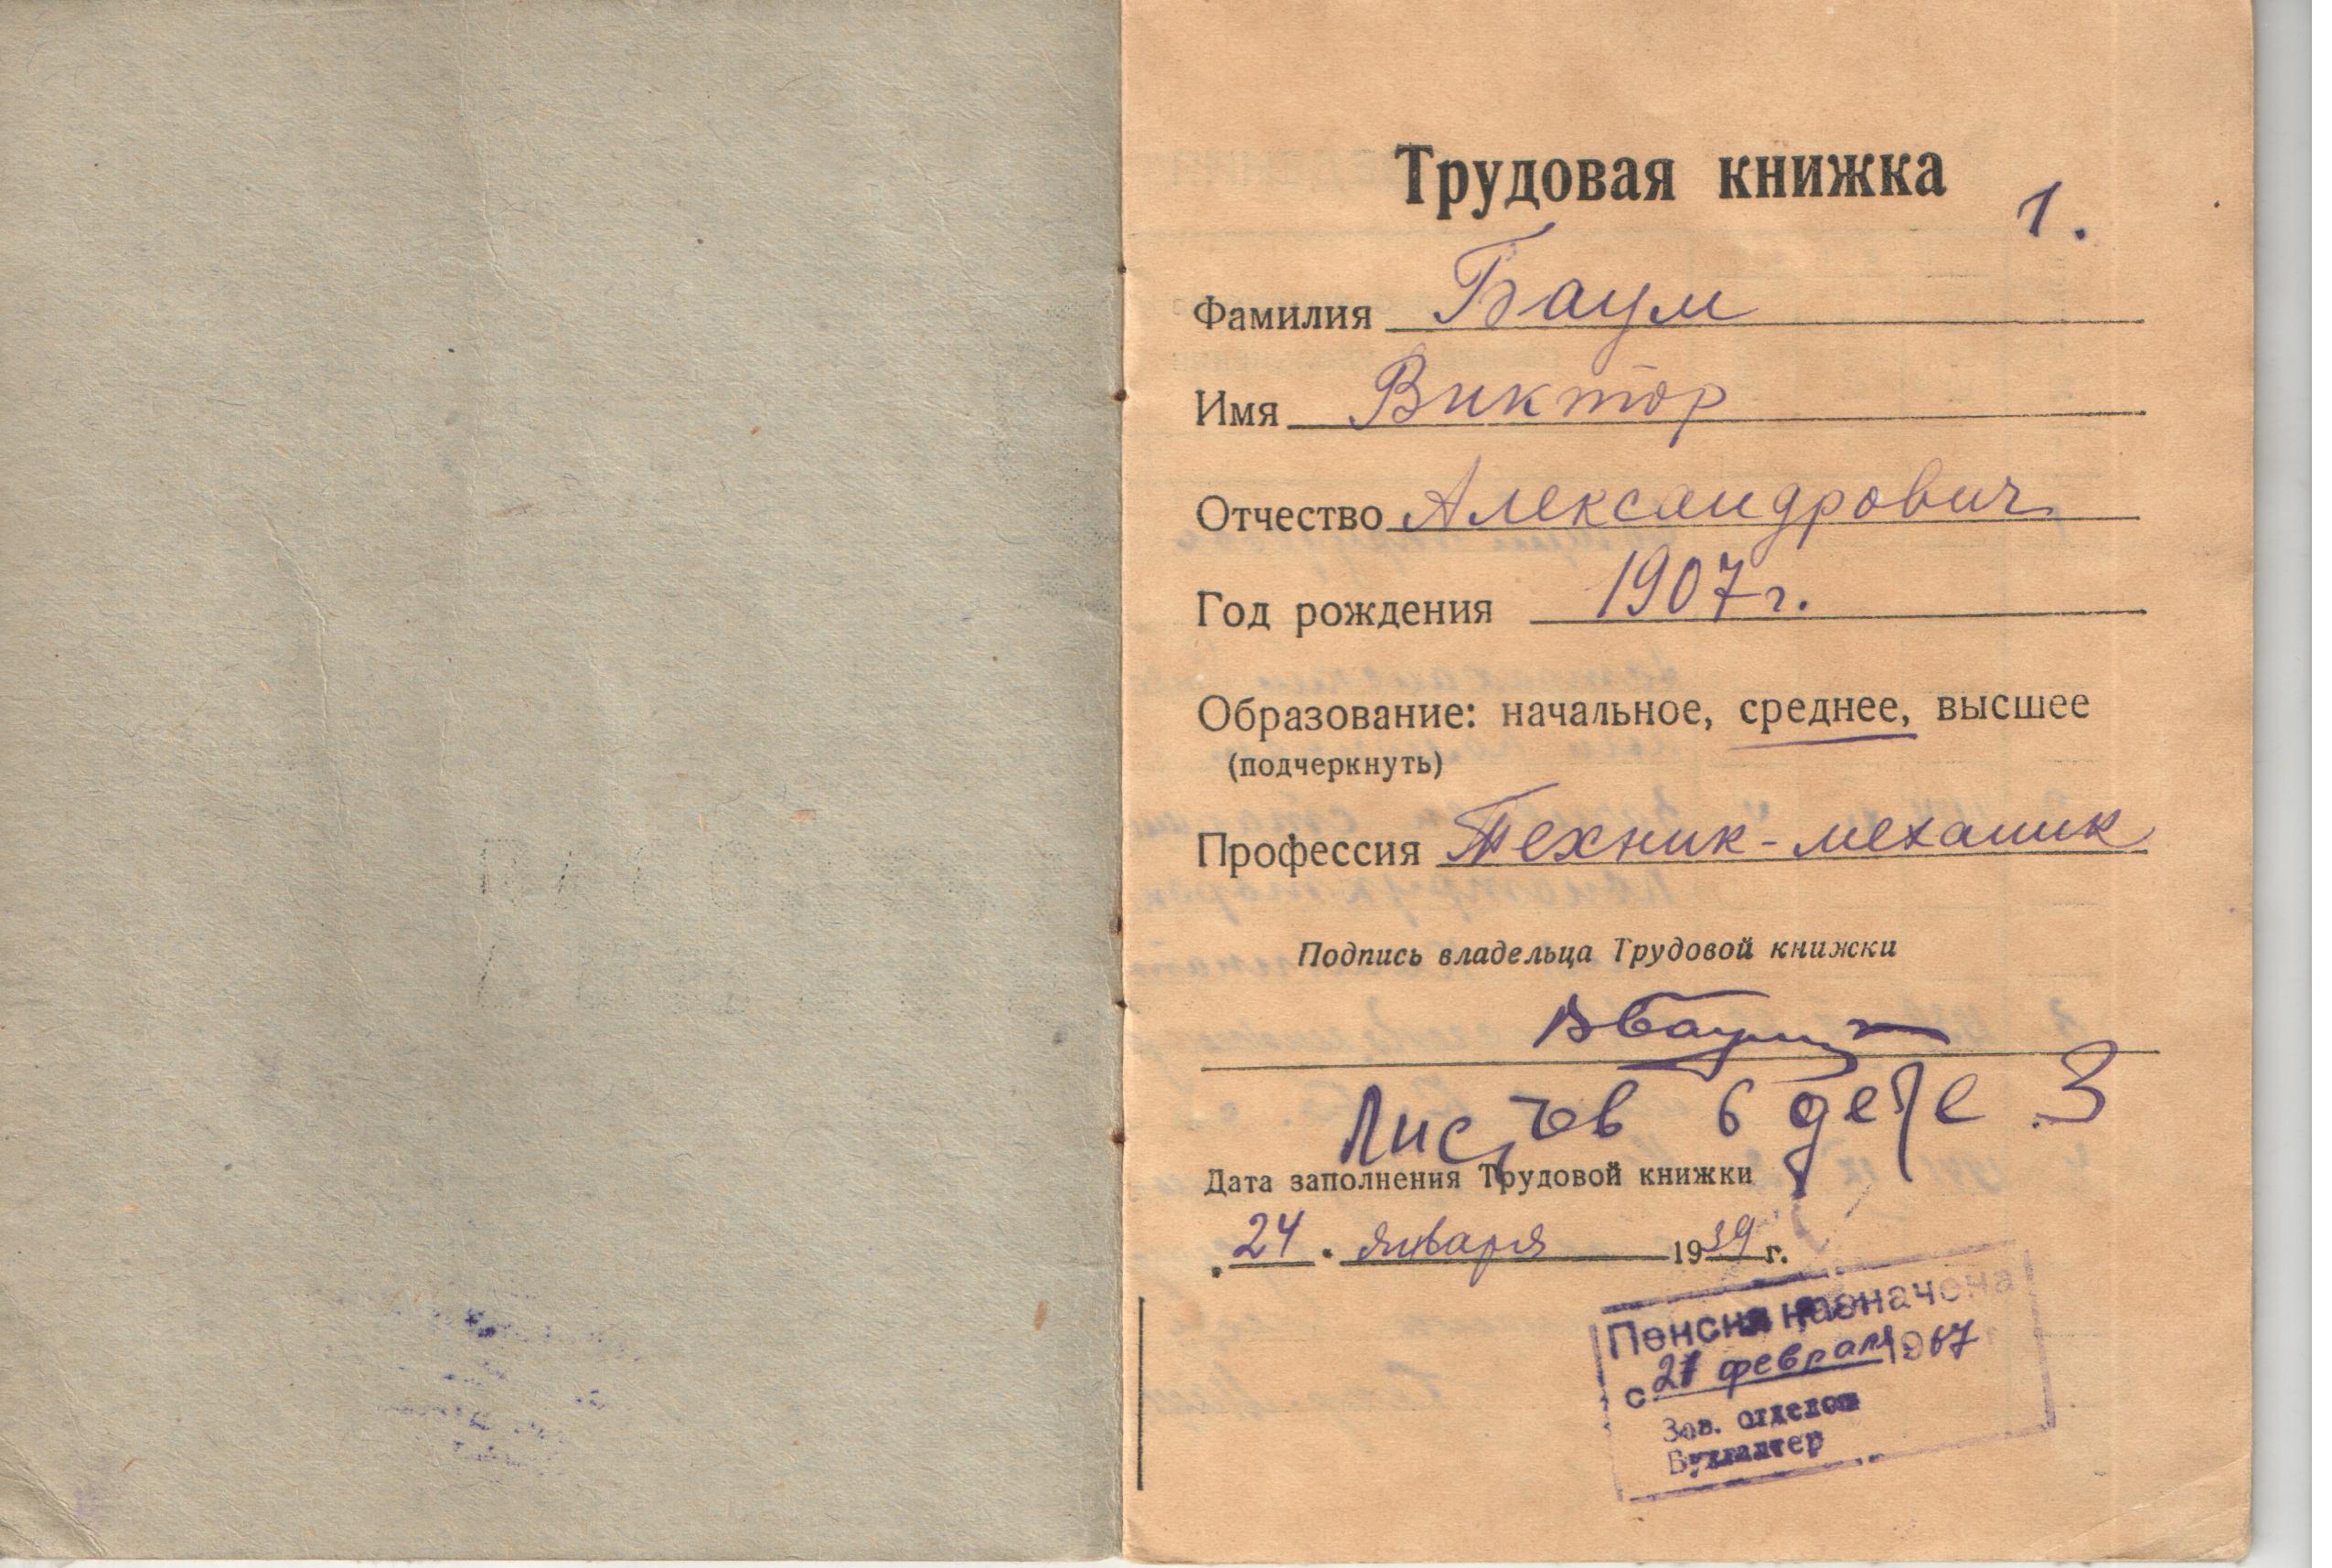 Трудовая книжка
1.
Фамилия Баум
Имя Виктор
Отчество Александрович
Год рождения 1907 г.
Образование: начальное, среднее, высшее
(подчеркнуть)
Профессия Техник-механик
Подпись владельца Трудовой книжки
ВБаум
Листов в деле 3
Дата заполнения Трудовой книжки
"24" января 1939 г.
Пенсия назначена
с 21 февраля 1967
Зав. отделом
Бухгалтер